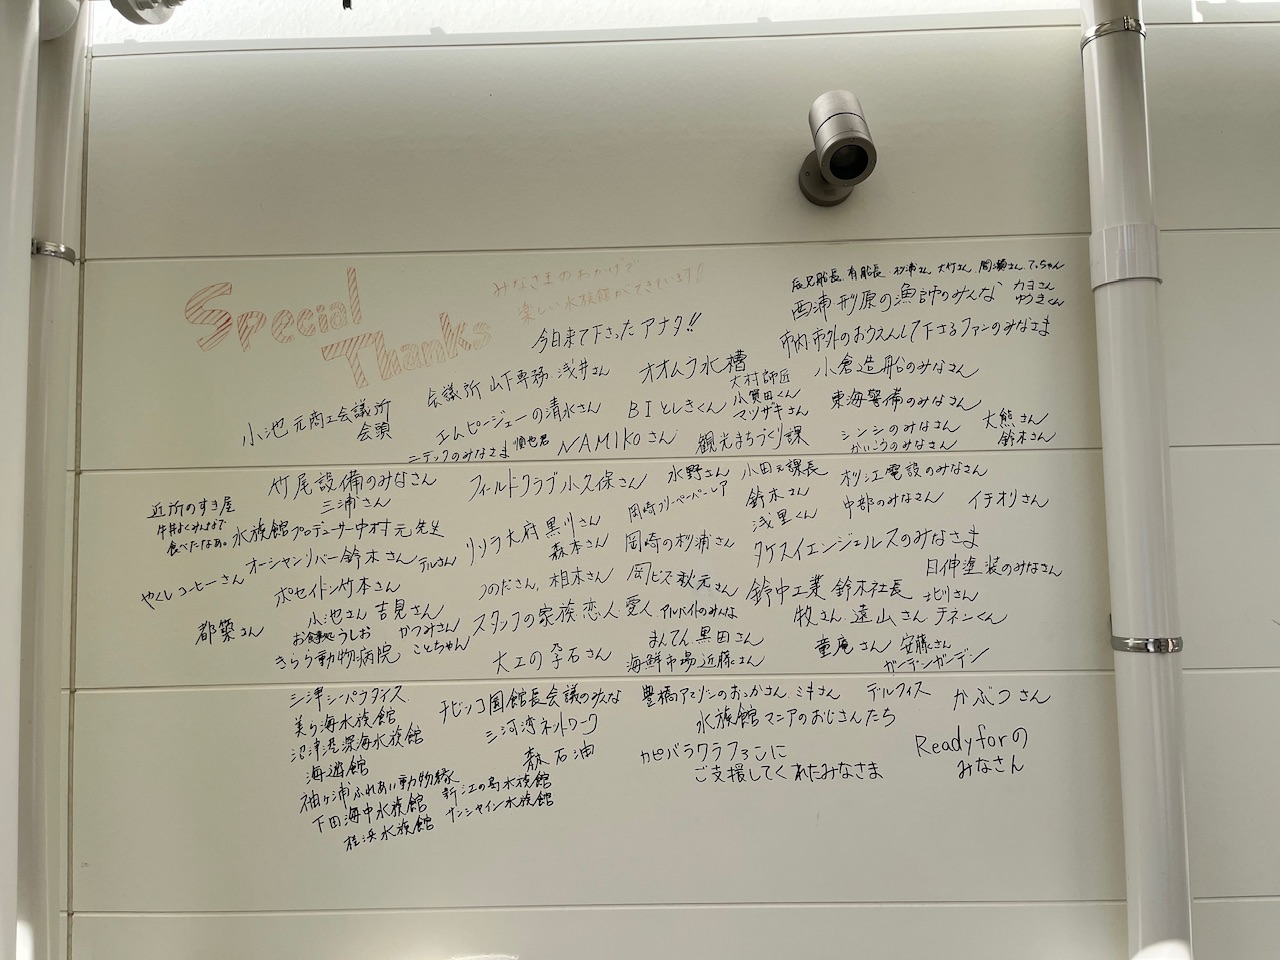 Special
Thanks
みなさまのおかげで
楽しい水族館ができています!!
今日来て下さったアナタ!!
辰兄船長、有船長、杉浦さん、大竹さん、間瀬さん、てっちゃん
西浦 形原の漁師のみんな
カヨさん
ゆうきくん
市内市外のおうえんして下さるファンのみなさま
小池元商工会議所
会頭
会議所 山下専務 浅井さん
オオムラ水槽
大村師匠
小賀田くん
マツザキさん
小倉造船のみなさん
エムピージェーの清水さん
BIとしきくん
東海警備のみなさん
ニデックのみなさま
順也君
NAMIKOさん
観光まちづくり課
シンシのみなさん
かいこうのみなさん
大熊さん
鈴木さん
竹尾設備のみなさん
三浦さん
フィールドクラブ小久保さん
水野さん
小田元課長
松江電設のみなさん
近所のすき屋
牛丼よくみんなで
食べたなあ。
水族館プロデューサー中村元先生
岡崎フリーペーパーレア
鈴木さん
浅里くん
中部のみなさん
イチオリさん
オーシャンリバー鈴木さん
テルさん
リソラ大府 黒川さん
森本さん
岡崎の杉浦さん
タケスイエンジェルスのみなさま
やくしコーヒーさん
ポセイドン竹本さん
つのださん、相木さん
岡ビズ秋元さん
鈴中工業 鈴木社長
日伸塗装のみなさん
北川さん
都築さん
小池さん 吉見さん
お食事処うしお
かつみさん
スタッフの家族・恋人・愛人
アルバイトのみんな
牧さん 遠山さん チネンくん
きらら動物病院
ことちゃん
大工の孕石さん
まんてん 黒田さん
海鮮市場 近藤さん
童庵さん
安藤さん
ガーデンガーデン
三津シーパラダイス
美ら海水族館
沼津港深海水族館
海遊館
袖ヶ浦ふれあい動物縁
下田海中水族館
桂浜水族館
新江の島水族館
サンシャイン水族館
チビッコ園館長会議のみんな
三河湾ネットワーク
森石油
豊橋アマゾンのおっかさん、ミキさん
デルフィス
かぶつさん
水族館マニアのおじさんたち
カピバラクラファンに
ご支援してくれたみなさま
Readyforの
みなさん